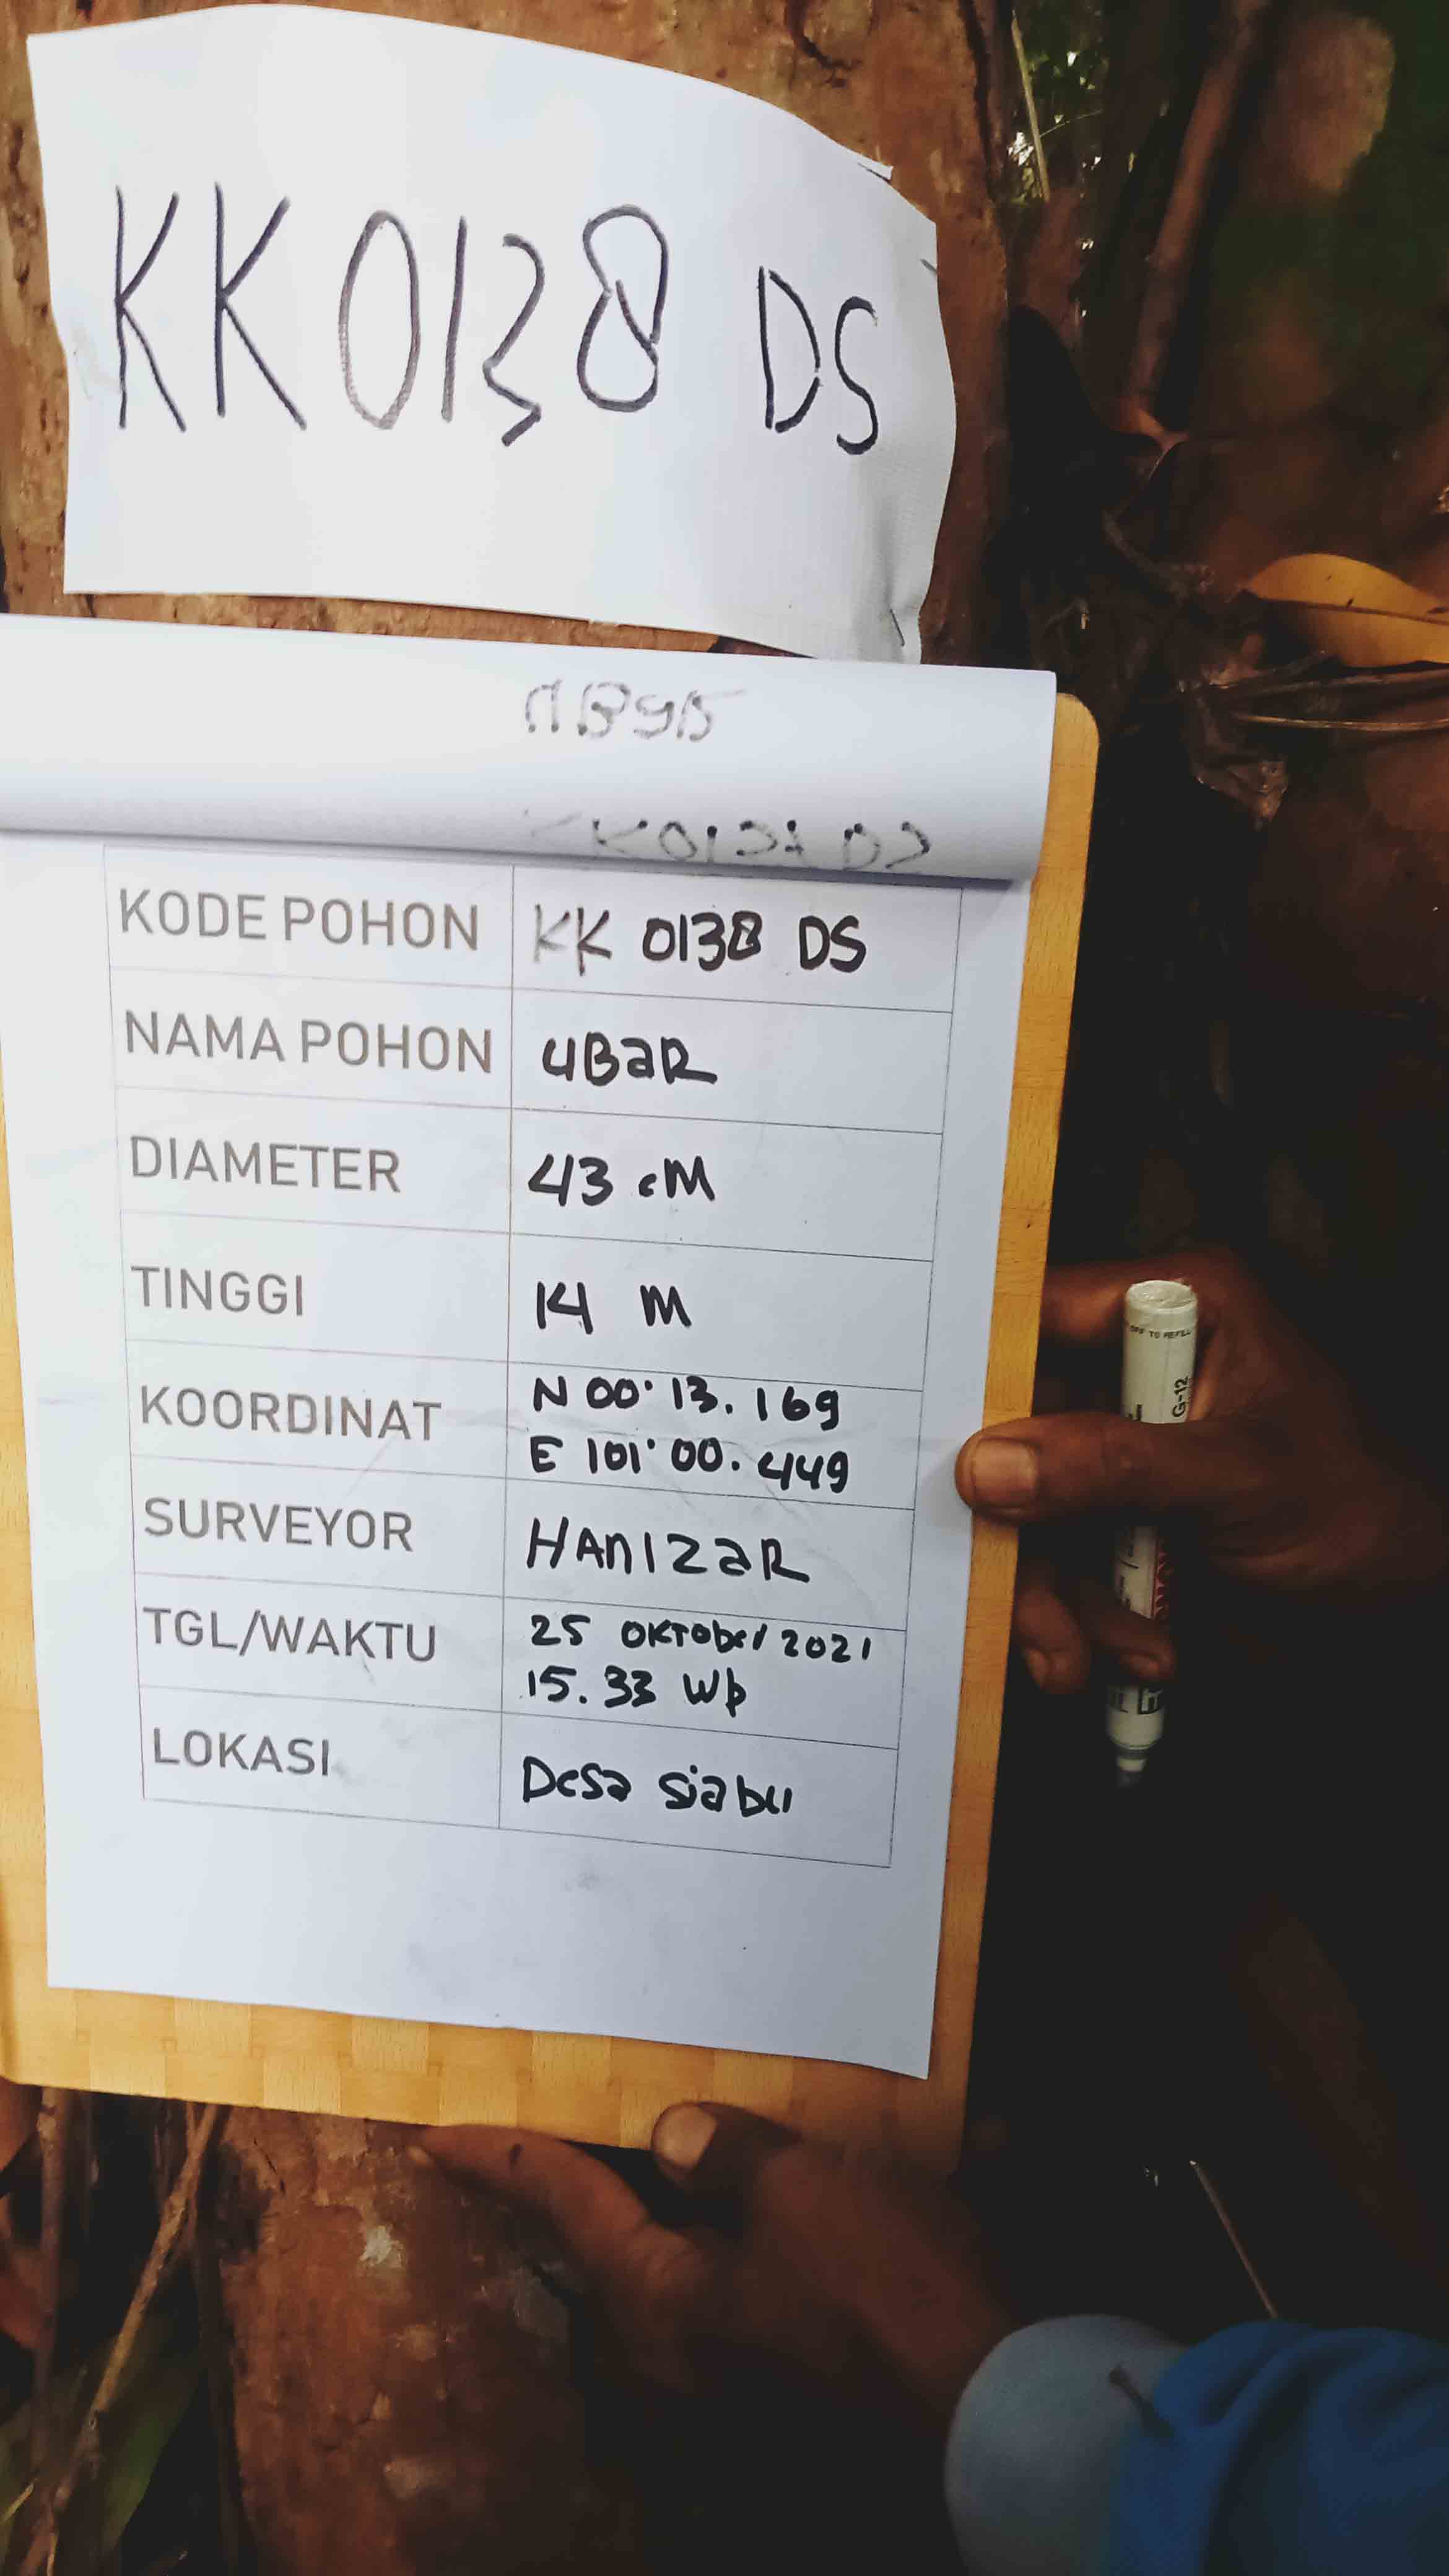 KK0138 DS
KODE POHON KK 0138 DS
NAMA POHON UBAR
DIAMETER 43 cM
TINGGI 14 M
KOORDINAT N 00° 13. 169
E 101° 00. 449
SURVEYOR HANIZAR
TGL/WAKTU 25 OKTober 2021
15.33 Wib
LOKASI Desa siabu
OFF TO REFILL
G-12